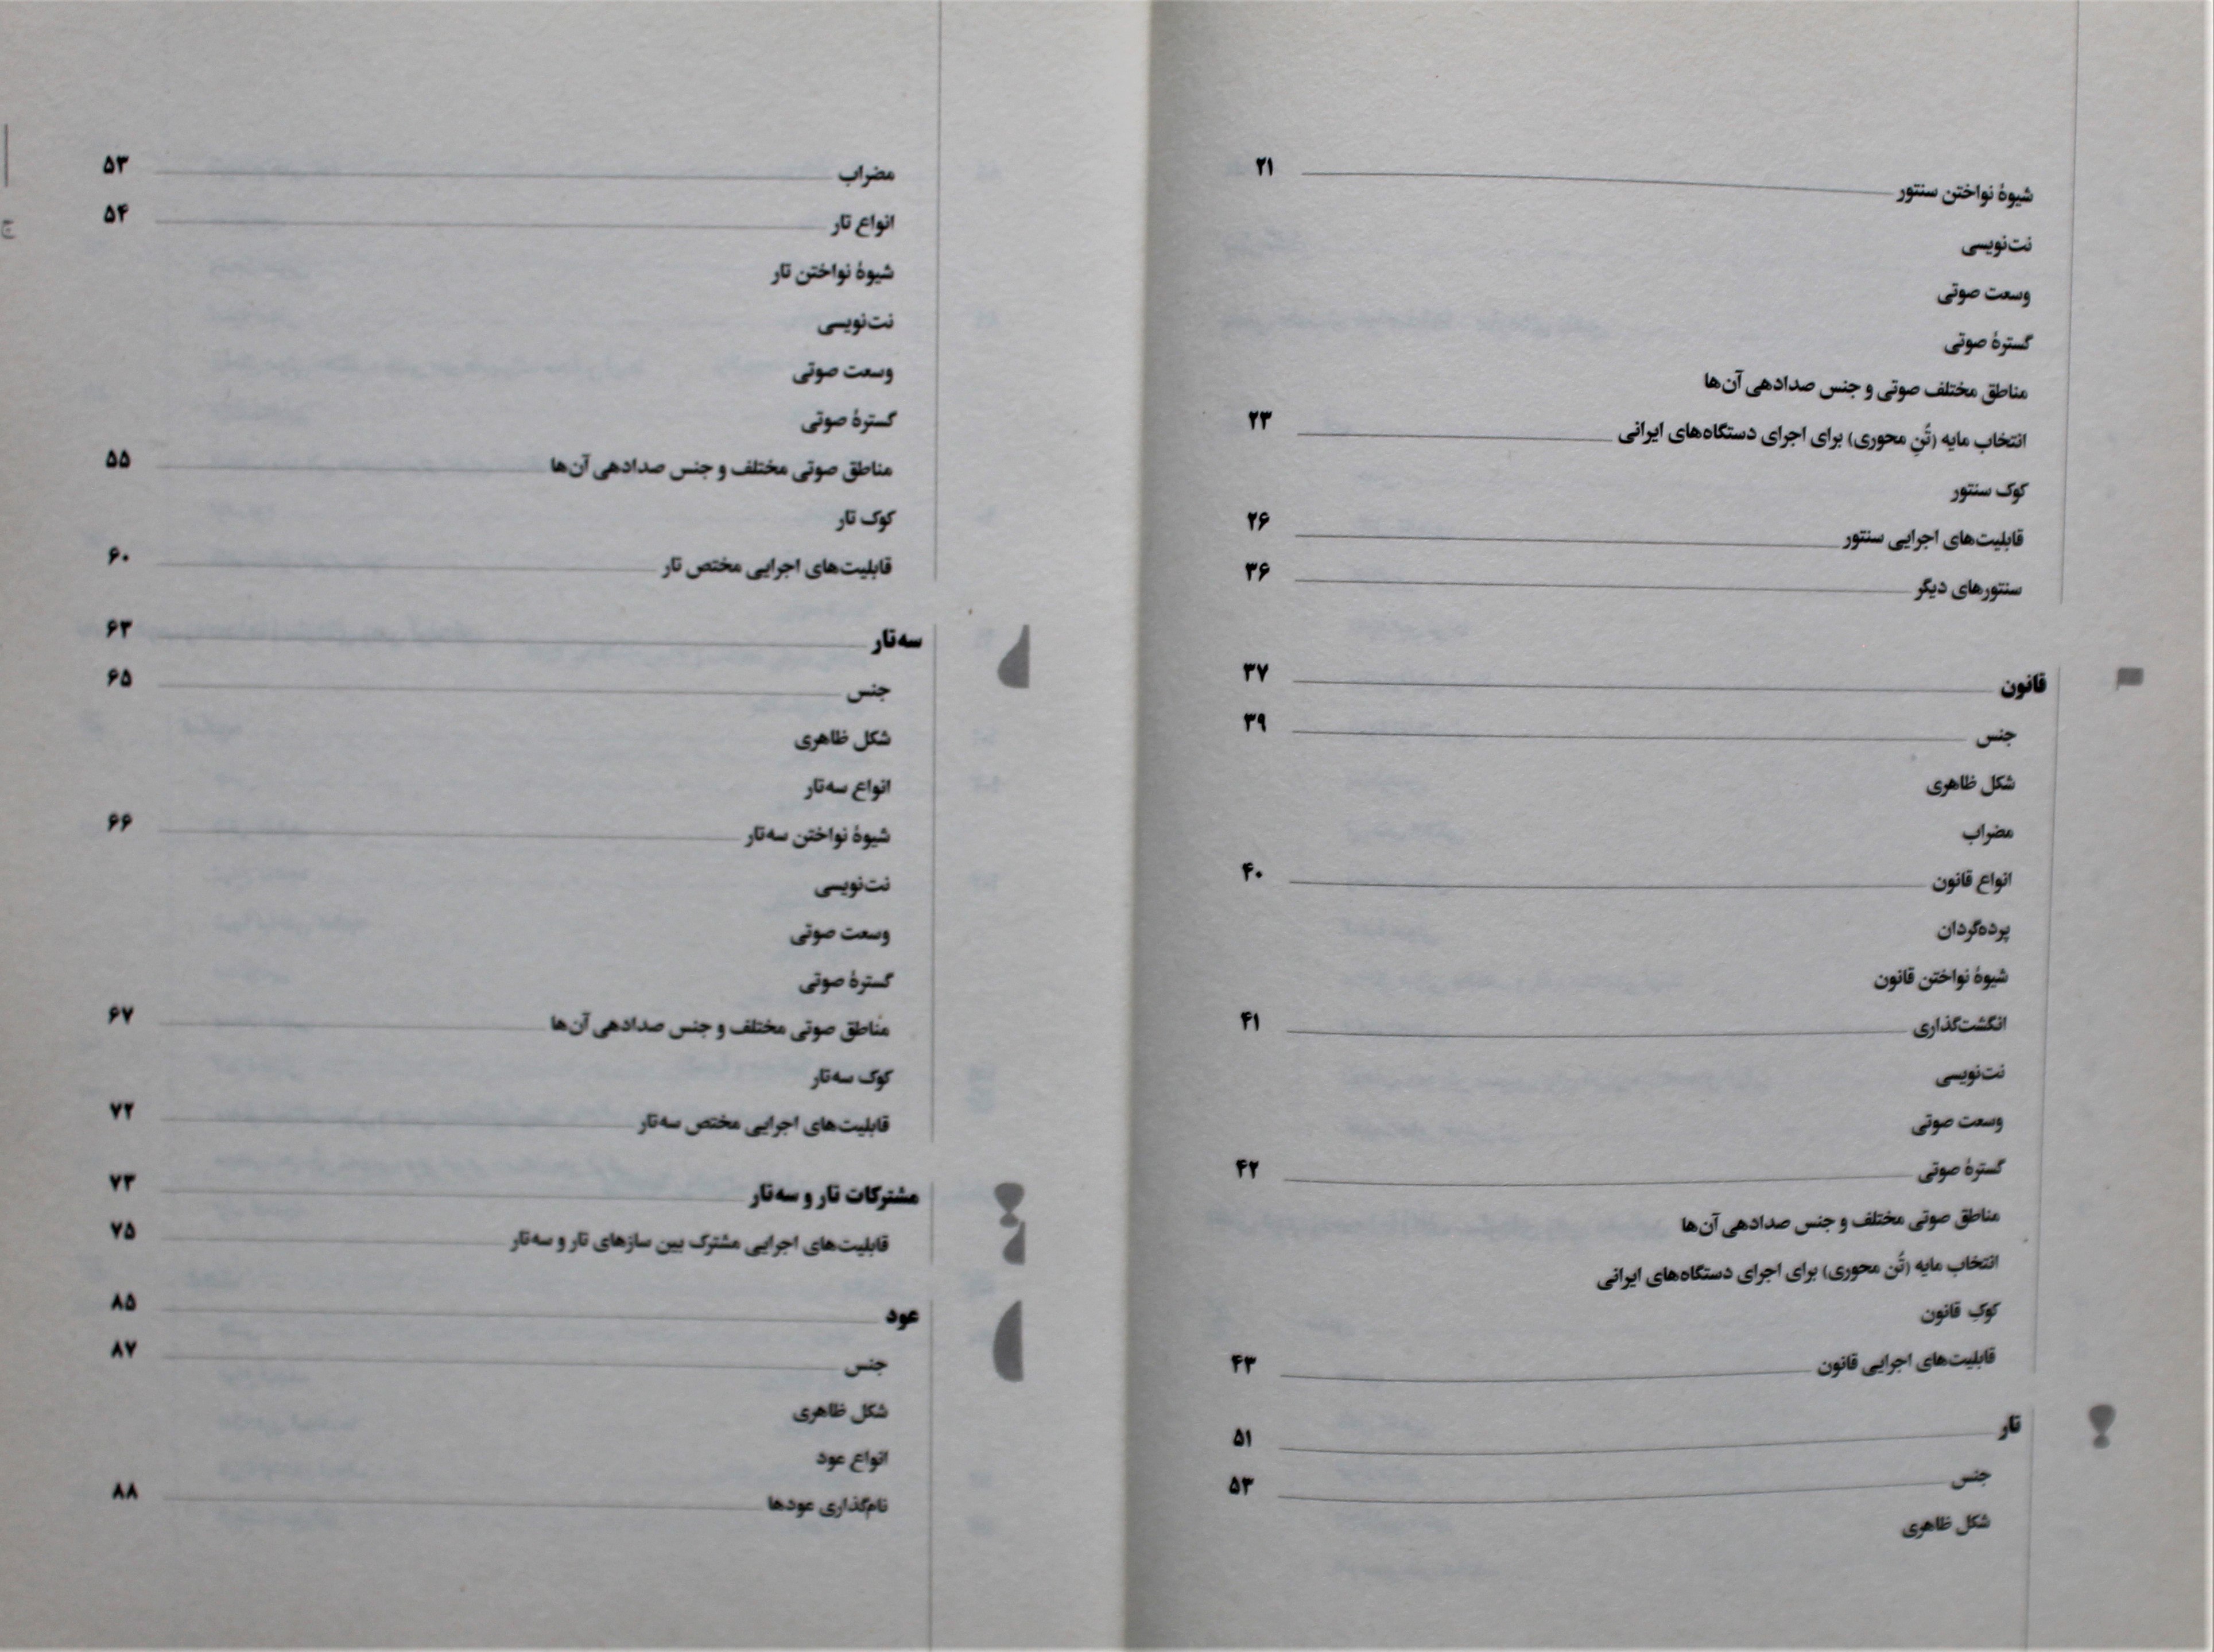 شیوهٔ نواختن سنتور ۲۱
نت‌نویسی
وسعت صوتی
گسترهٔ صوتی
مناطق مختلف صوتی و جنس صدادهی آن‌ها
انتخاب مایه (تُنِ محوری) برای اجرای دستگاه‌های ایرانی ۲۳
کوک سنتور
قابلیت‌های اجرایی سنتور ۲۶
سنتورهای دیگر ۳۶
قانون ۳۷
جنس ۳۹
شکل ظاهری
مضراب
انواع قانون ۴۰
پرده‌گردان
شیوهٔ نواختن قانون
انگشت‌گذاری ۴۱
نت‌نویسی
وسعت صوتی
گسترهٔ صوتی ۴۲
مناطق صوتی مختلف و جنس صدادهی آن‌ها
انتخاب مایه (تُن محوری) برای اجرای دستگاه‌های ایرانی
کوکِ قانون
قابلیت‌های اجرایی قانون ۴۳
تار ۵۱
جنس ۵۳
شکل ظاهری
مضراب ۵۳
انواع تار ۵۴
شیوهٔ نواختن تار
نت‌نویسی
وسعت صوتی
گسترهٔ صوتی
مناطق صوتی مختلف و جنس صدادهی آن‌ها ۵۵
کوک تار
قابلیت‌های اجرایی مختص تار ۶۰
سه‌تار ۶۳
جنس ۶۵
شکل ظاهری
انواع سه‌تار
شیوهٔ نواختن سه‌تار ۶۶
نت‌نویسی
وسعت صوتی
گسترهٔ صوتی
مناطق صوتی مختلف و جنس صدادهی آن‌ها ۶۷
کوک سه‌تار
قابلیت‌های اجرایی مختص سه‌تار ۷۲
مشترکات تار و سه‌تار ۷۳
قابلیت‌های اجرایی مشترک بین سازهای تار و سه‌تار ۷۵
عود ۸۵
جنس ۸۷
شکل ظاهری
انواع عود
نام‌گذاری عودها ۸۸
ج